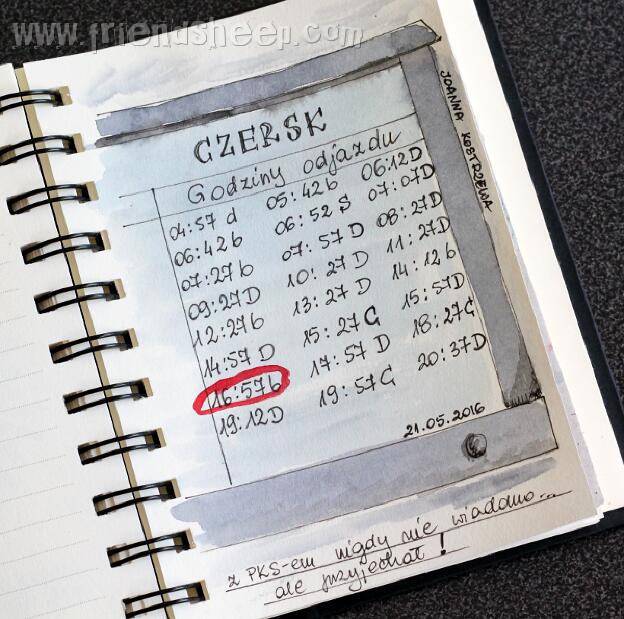 www.friendsheep.com
JOANNA KOSTRZEWA
CZERSK
Godziny odjazdu
04:57 d 05:42b 06:12D
06:42b 06:52 S 07:07D
07:27b 07:57D 08:27D
09:27D 10:27D 11:27D
12:27b 13:27D 14:12b
14:57 D 15:27G 15:57D
16:57b 17:57 D 18:27G
19:12D 19:57G 20:37D
21.05.2016
z PKS-em nigdy nie wiadomo...
ale przyjechał!